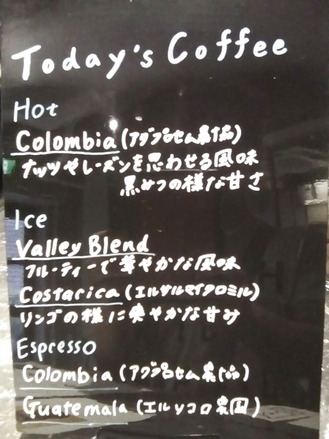 Today's Coffee
Hot
Colombia (アグアブランカ農園)
ナッツやレーズンを思わせる風味
黒みつの様な甘さ
Ice
Valley Blend
フルーティーで華やかな風味
Costarica (エルサルマイクロミル)
リンゴの様に爽やかな甘み
Espresso
Colombia
Guatemala (エルソコロ農園)